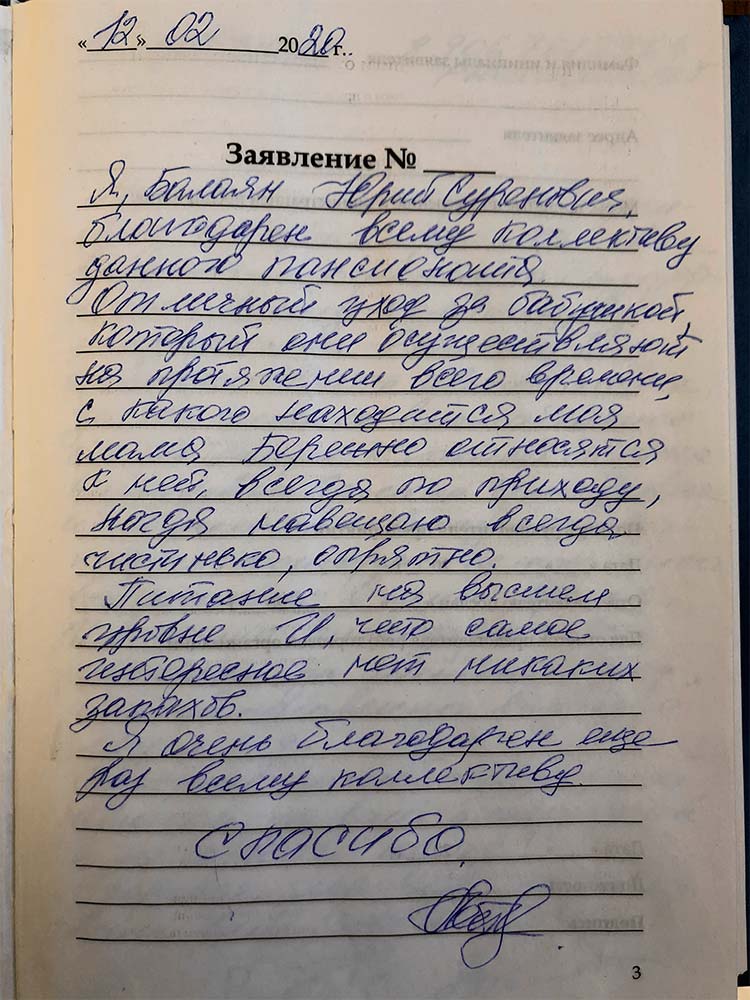 «12» 02 2020 г.
Заявление № ____
Я, Балаян Юрий Суренович,
благодарен всему коллективу
данного пансионата.
Отличный уход за бабушкой,
который они осуществляют
на протяжении всего времени,
с какого находится моя
мама Бережно относятся
к ней, всегда по приходу,
когда навещаю всегда
чистинько, опрятно.
Питание на высшем
уровне И, что самое
интересное нет никаких
запахов.
Я очень благодарен еще
раз всему коллективу.
Спасибо
3